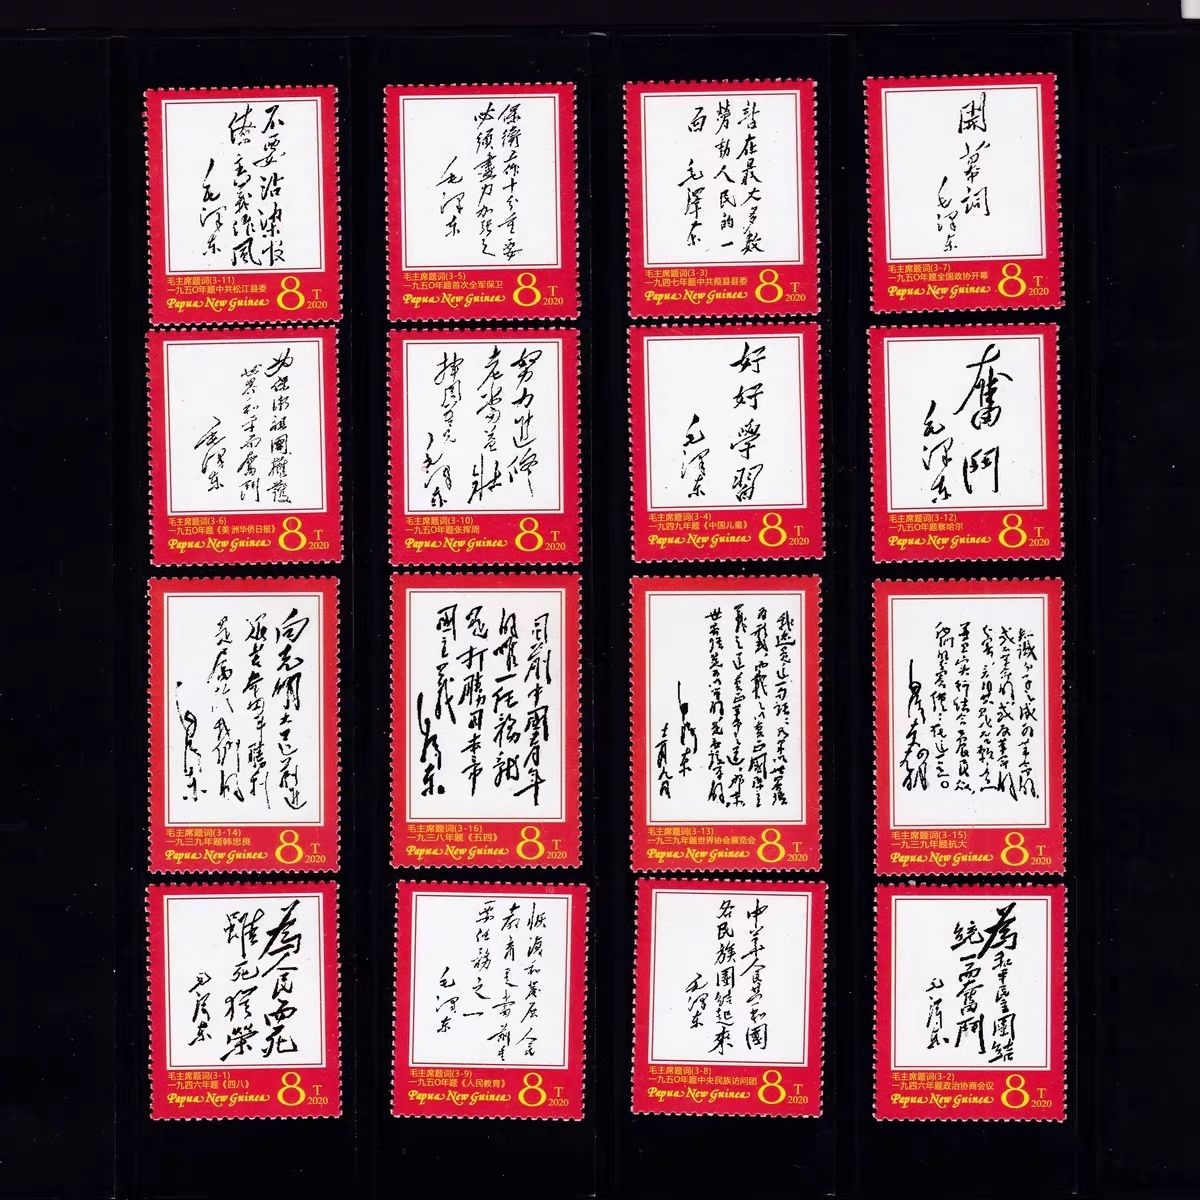 不要沾染官
僚主義作風
毛澤東
毛主席题词(3-11)
一九五〇年题中共松江县委
Papua New Guinea 8 T 2020
保衛工作十分重要
必須盡力加強之
毛澤東
毛主席题词(3-5)
一九五〇年题首次全军保卫
Papua New Guinea 8 T 2020
站在最大多數
勞動人民的一
面
毛澤東
毛主席题词(3-3)
一九四七年题中共葭县县委
Papua New Guinea 8 T 2020
開幕詞
毛澤東
毛主席题词(3-7)
一九五〇年题全国政协开幕
Papua New Guinea 8 T 2020
為保衛祖國擁護
世界和平而奮鬥
毛澤東
毛主席题词(3-6)
一九五〇年题《美洲华侨日报》
Papua New Guinea 8 T 2020
努力進修
老當益壯
毛澤東
毛主席题词(3-10)
一九五〇年题张挥周
Papua New Guinea 8 T 2020
好好學習
毛澤東
毛主席题词(3-4)
一九四九年题《中国儿童》
Papua New Guinea 8 T 2020
奮鬥
毛澤東
毛主席题词(3-12)
一九五〇年题察哈尔
Papua New Guinea 8 T 2020
向光明大道前進
是屬於我們的
毛澤東
毛主席题词(3-14)
一九三九年题韩忠良
Papua New Guinea 8 T 2020
目前中國青年
的唯一任務就
是打勝日本帝
國主義
毛澤東
毛主席题词(3-16)
一九三八年题《五四》
Papua New Guinea 8 T 2020
毛澤東
十二月九日
毛主席题词(3-13)
一九三九年题世界协会展览会
Papua New Guinea 8 T 2020
毛澤東
毛主席题词(3-15)
一九三九年题抗大
Papua New Guinea 8 T 2020
為人民而死
雖死猶榮
毛澤東
毛主席题词(3-1)
一九四六年题《四八》
Papua New Guinea 8 T 2020
恢復和發展人民
教育是當前重
要任務之一
毛澤東
毛主席题词(3-9)
一九五〇年题《人民教育》
Papua New Guinea 8 T 2020
中華人民共和國
各民族團結起來
毛澤東
毛主席题词(3-8)
一九五〇年题中央民族访问团
Papua New Guinea 8 T 2020
為和平民主團結
統一而奮鬥
毛澤東
毛主席题词(3-2)
一九四六年题政治协商会议
Papua New Guinea 8 T 2020